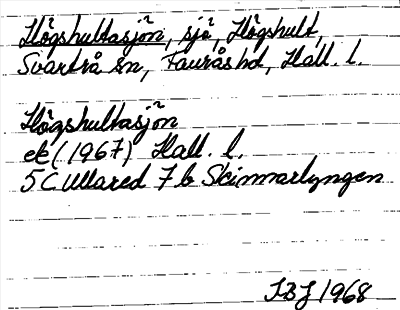 Högshultasjön, sjö, Högshult,
Svartrå sn, Faurås hd, Hall. l.
Högshultasjön
ek (1967) Hall. l.
5C Ullared 7b Skinnarlyngen
IBJ 1968